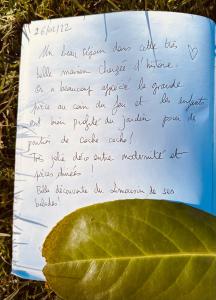 26/02/22
Un beau séjour dans cette très
belle maison chargée d'histoire.
On a beaucoup apprécié la grande
pièce au coin du feu et les enfants
ont bien profité du jardin pour de
parties de cache cache!
Très jolie déco entre modernité et
pièces chinées!
Belle découverte du Limousin de ses
balades!